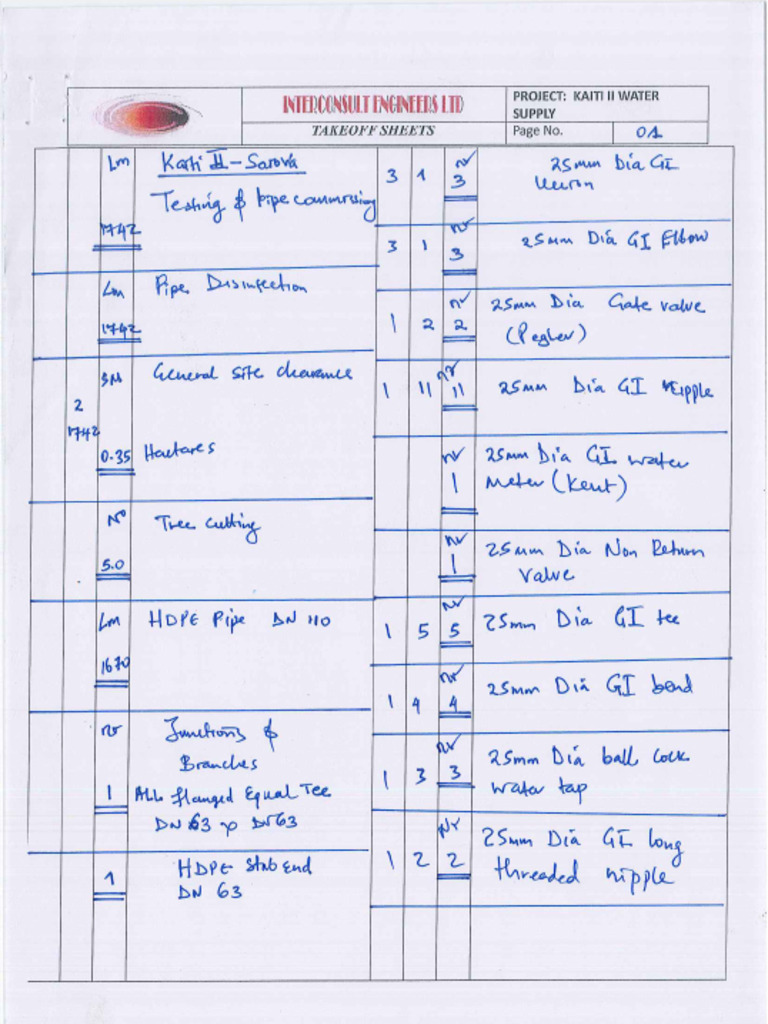 INTERCONSULT ENGINEERS LTD
TAKEOFF SHEETS
PROJECT: KAITI II WATER
SUPPLY
Page No. 01
Lm Kaiti II - Sarova
Testing & pipe
1742
Lm Pipe Disinfection
1742
SM General site clearance
2
1742
0.35 Hactares
No Tree cutting
5.0
Lm HDPE Pipe DN 110
1670
nr Junctions &
Branches
1 All flanged Equal Tee
DN 63 x DN 63
1 HDPE Stub End
DN 63
nr 25mm Dia GI
3 1 3 Union
nr 25mm Dia GI Elbow
3 1 3
nr 25mm Dia Gate valve
1 2 2 (Pegler)
nr
1 11 11 25mm Dia GI Nipple
nr 25mm Dia GI water
1 Meter (Kent)
nr 25mm Dia Non Return
1 Valve
nr
1 5 5 25mm Dia GI tee
nr 25mm Dia GI bend
1 4 4
nr 25mm Dia ball cock
1 3 3 water tap
Nr 25mm Dia GI long
1 2 2 threaded nipple